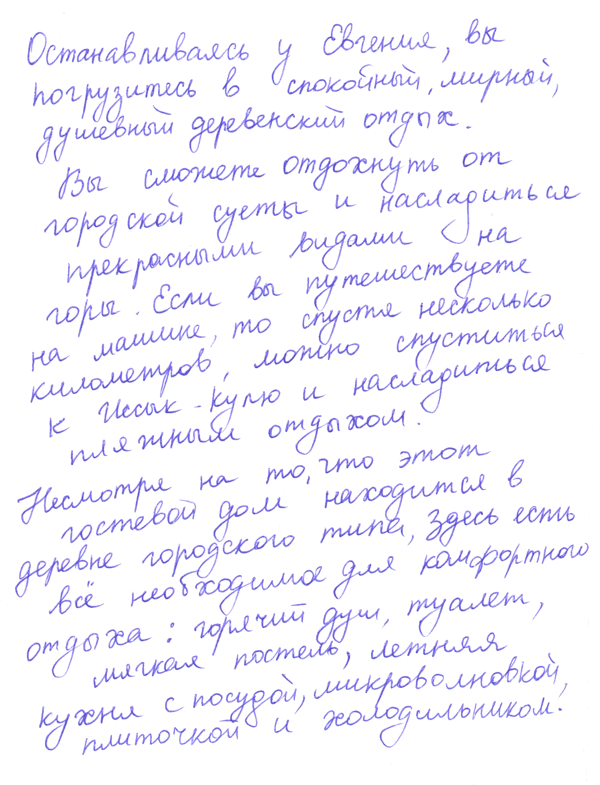 Останавливаясь у Евгения, вы
погрузитесь в спокойный, мирный,
душевный деревенский отдых.
Вы сможете отдохнуть от
городской суеты и насладиться
прекрасными видами на
горы. Если вы путешествуете
на машине, то спустя несколько
километров, можно спуститься
к Иссык-Кулю и насладиться
пляжным отдыхом.
Несмотря на то, что этот
гостевой дом находится в
деревне городского типа, здесь есть
всё необходимое для комфортного
отдыха: горячий душ, туалет,
мягкая постель, летняя
кухня с посудой, микроволновкой,
плиточкой и холодильником.